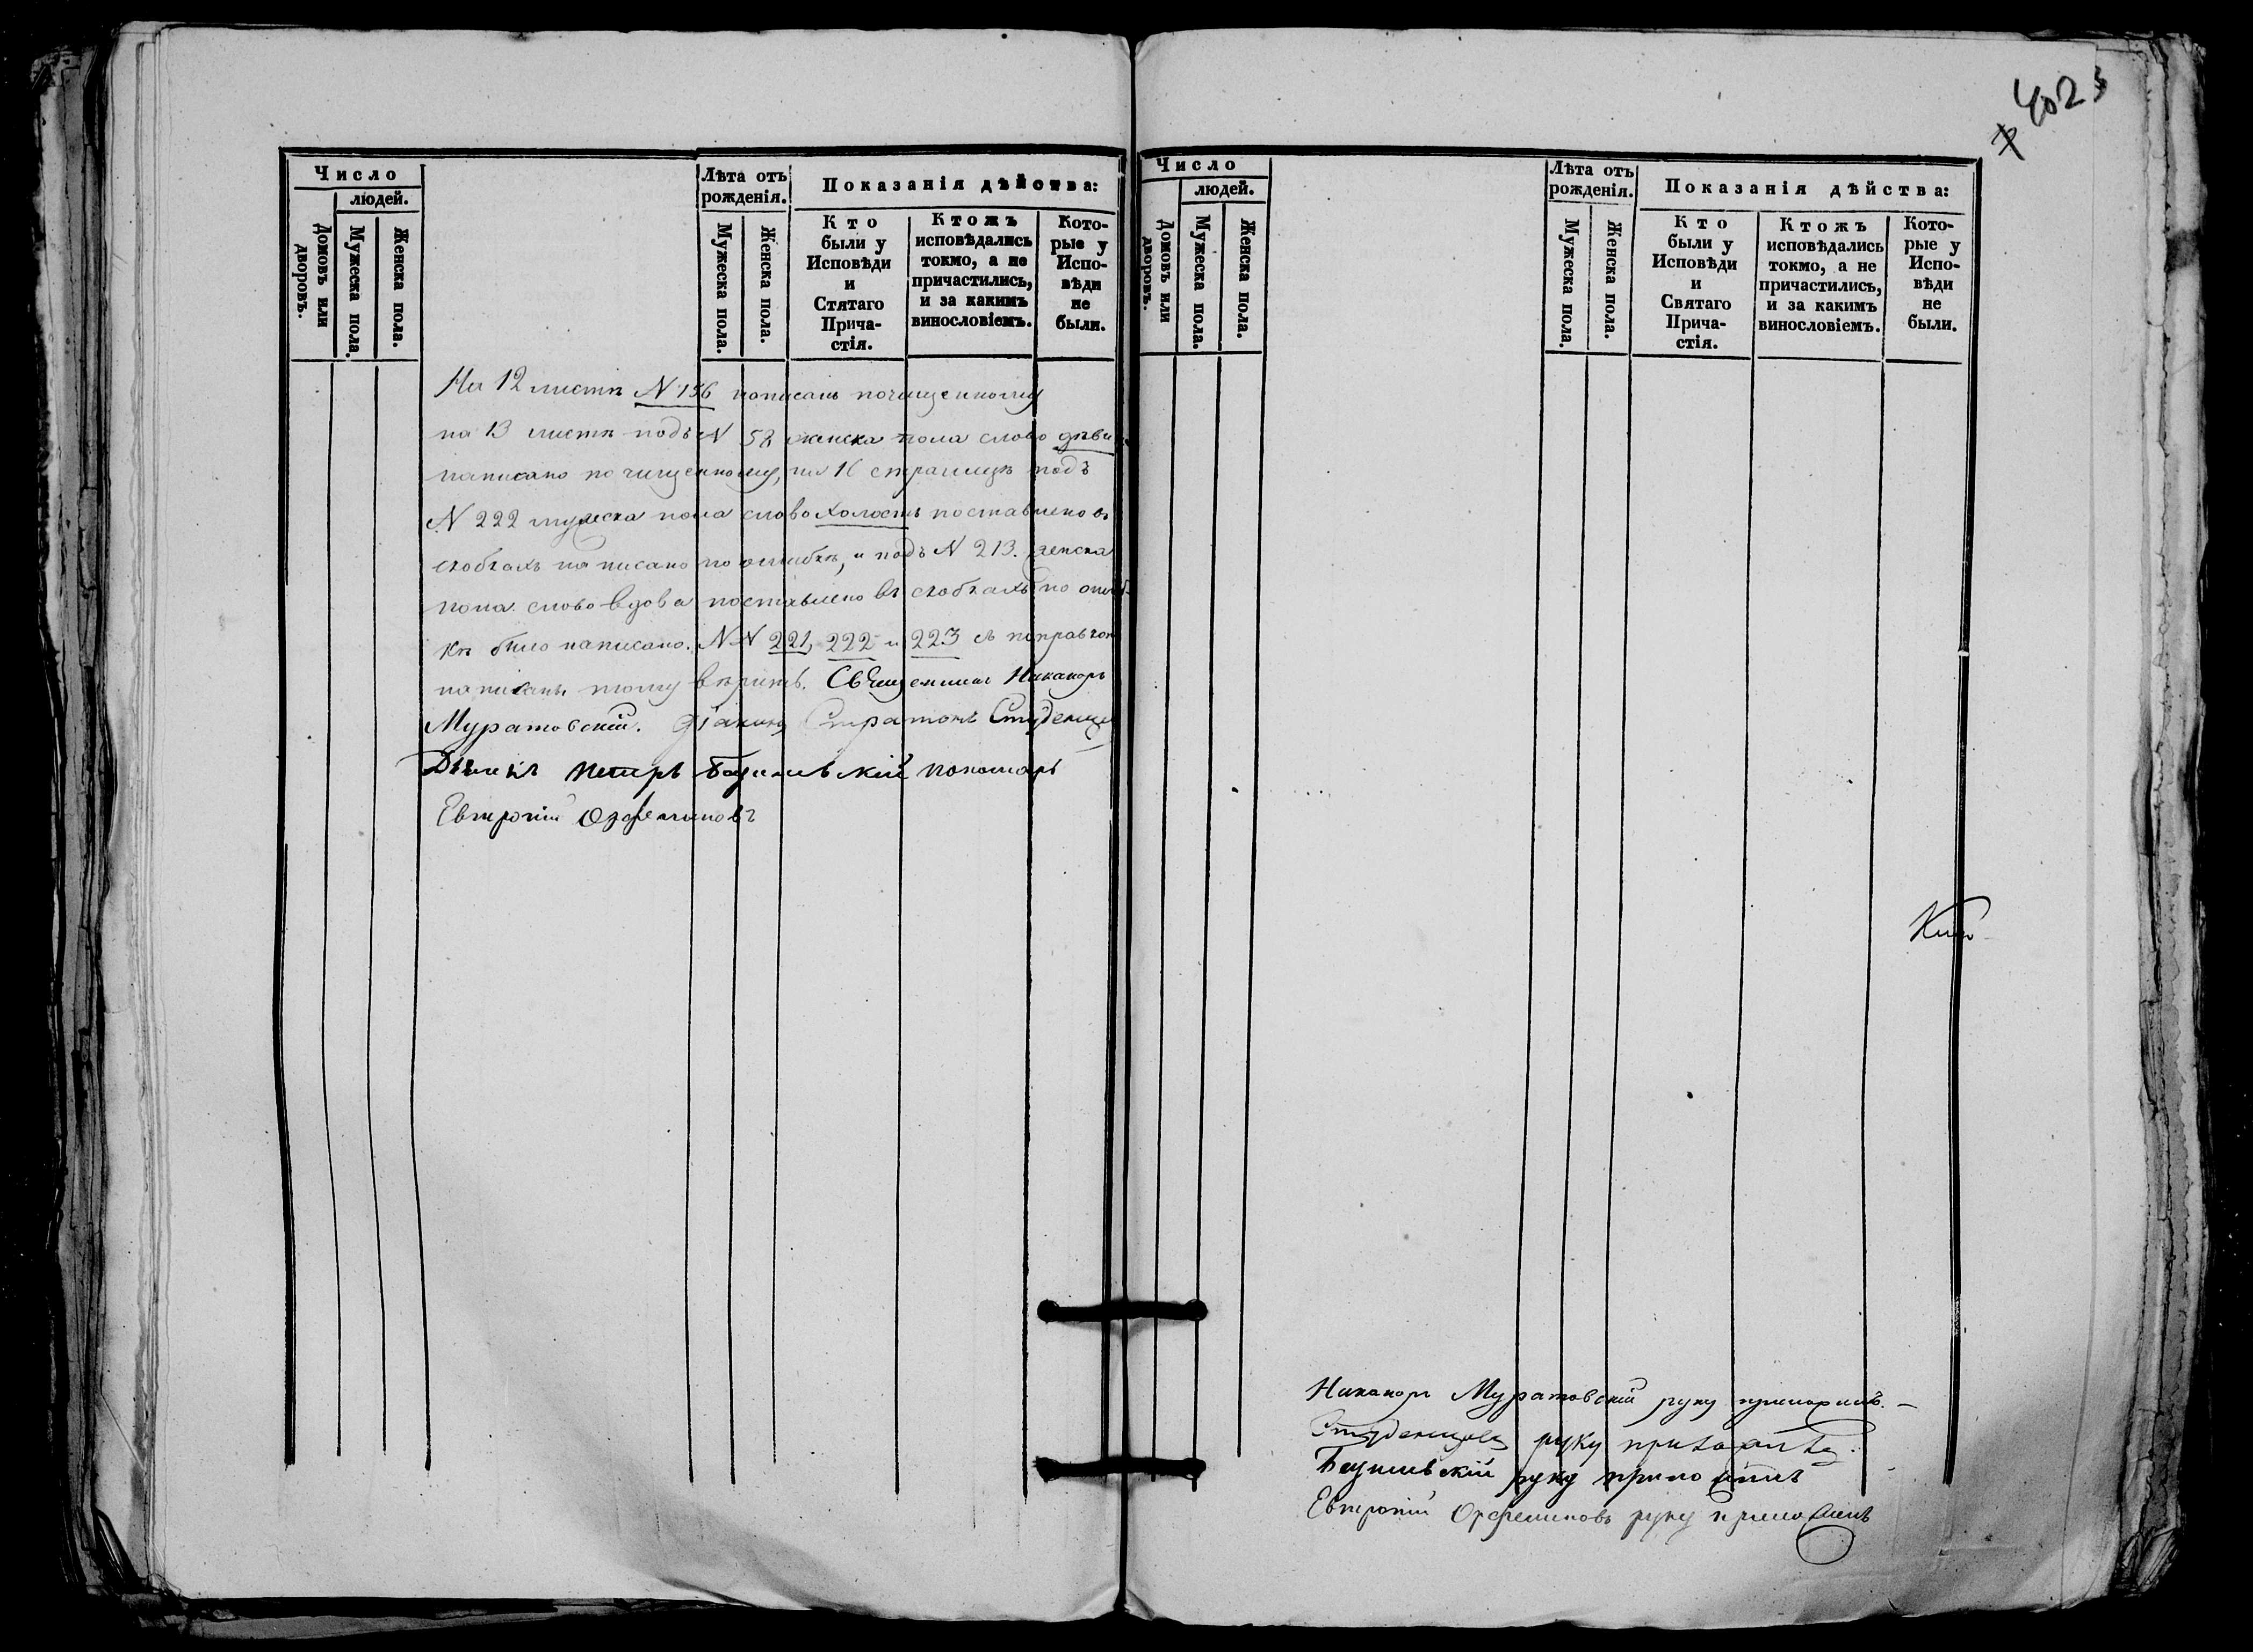 402
Число
людей.
Домовъ или дворовъ.
Мужеска пола.
Женска пола.
Лѣта отъ рожденія.
Мужеска пола.
Женска пола.
Показанія дѣйства:
Кто были у Исповѣди и Стятаго Прича-стія.
Ктожъ исповѣдались токмо, а не причастились, и за какимъ винословіемъ.
Кото-рые у Испо-вѣди не были.
На 12 листѣ N 156 написанъ по чищенному
на 13 листѣ подъ N 58 женска пола слово
написано по чищенному, на 16 страницѣ подъ
N 222 мужеска пола слово холостъ поставлено въ
скобкахъ написано по ошибкѣ, и подъ N 213. женска
пола слово вдова поставлено въ скобкахъ по ошиб
кѣ было написано. NN 221, 222 и 223 съ поправкою
написаны тому вѣрить. Священникъ Никаноръ
Муратовскій. Діаконъ Стратонъ
Дьячекъ Петръ пономарь
Евтропій
Число
людей.
Домовъ или дворовъ.
Мужеска пола.
Женска пола.
Лѣта отъ рожденія.
Мужеска пола.
Женска пола.
Показанія дѣйства:
Кто были у Исповѣди и Святаго Прича-стія.
Ктожъ исповѣдались токмо, а не причастились, и за какимъ винословіемъ.
Кото-рые у Испо-вѣди не были.
Никаноръ Муратовскій руку приложилъ.
Студенцовъ руку приложилъ.
руку приложилъ
Евтропій руку приложилъ